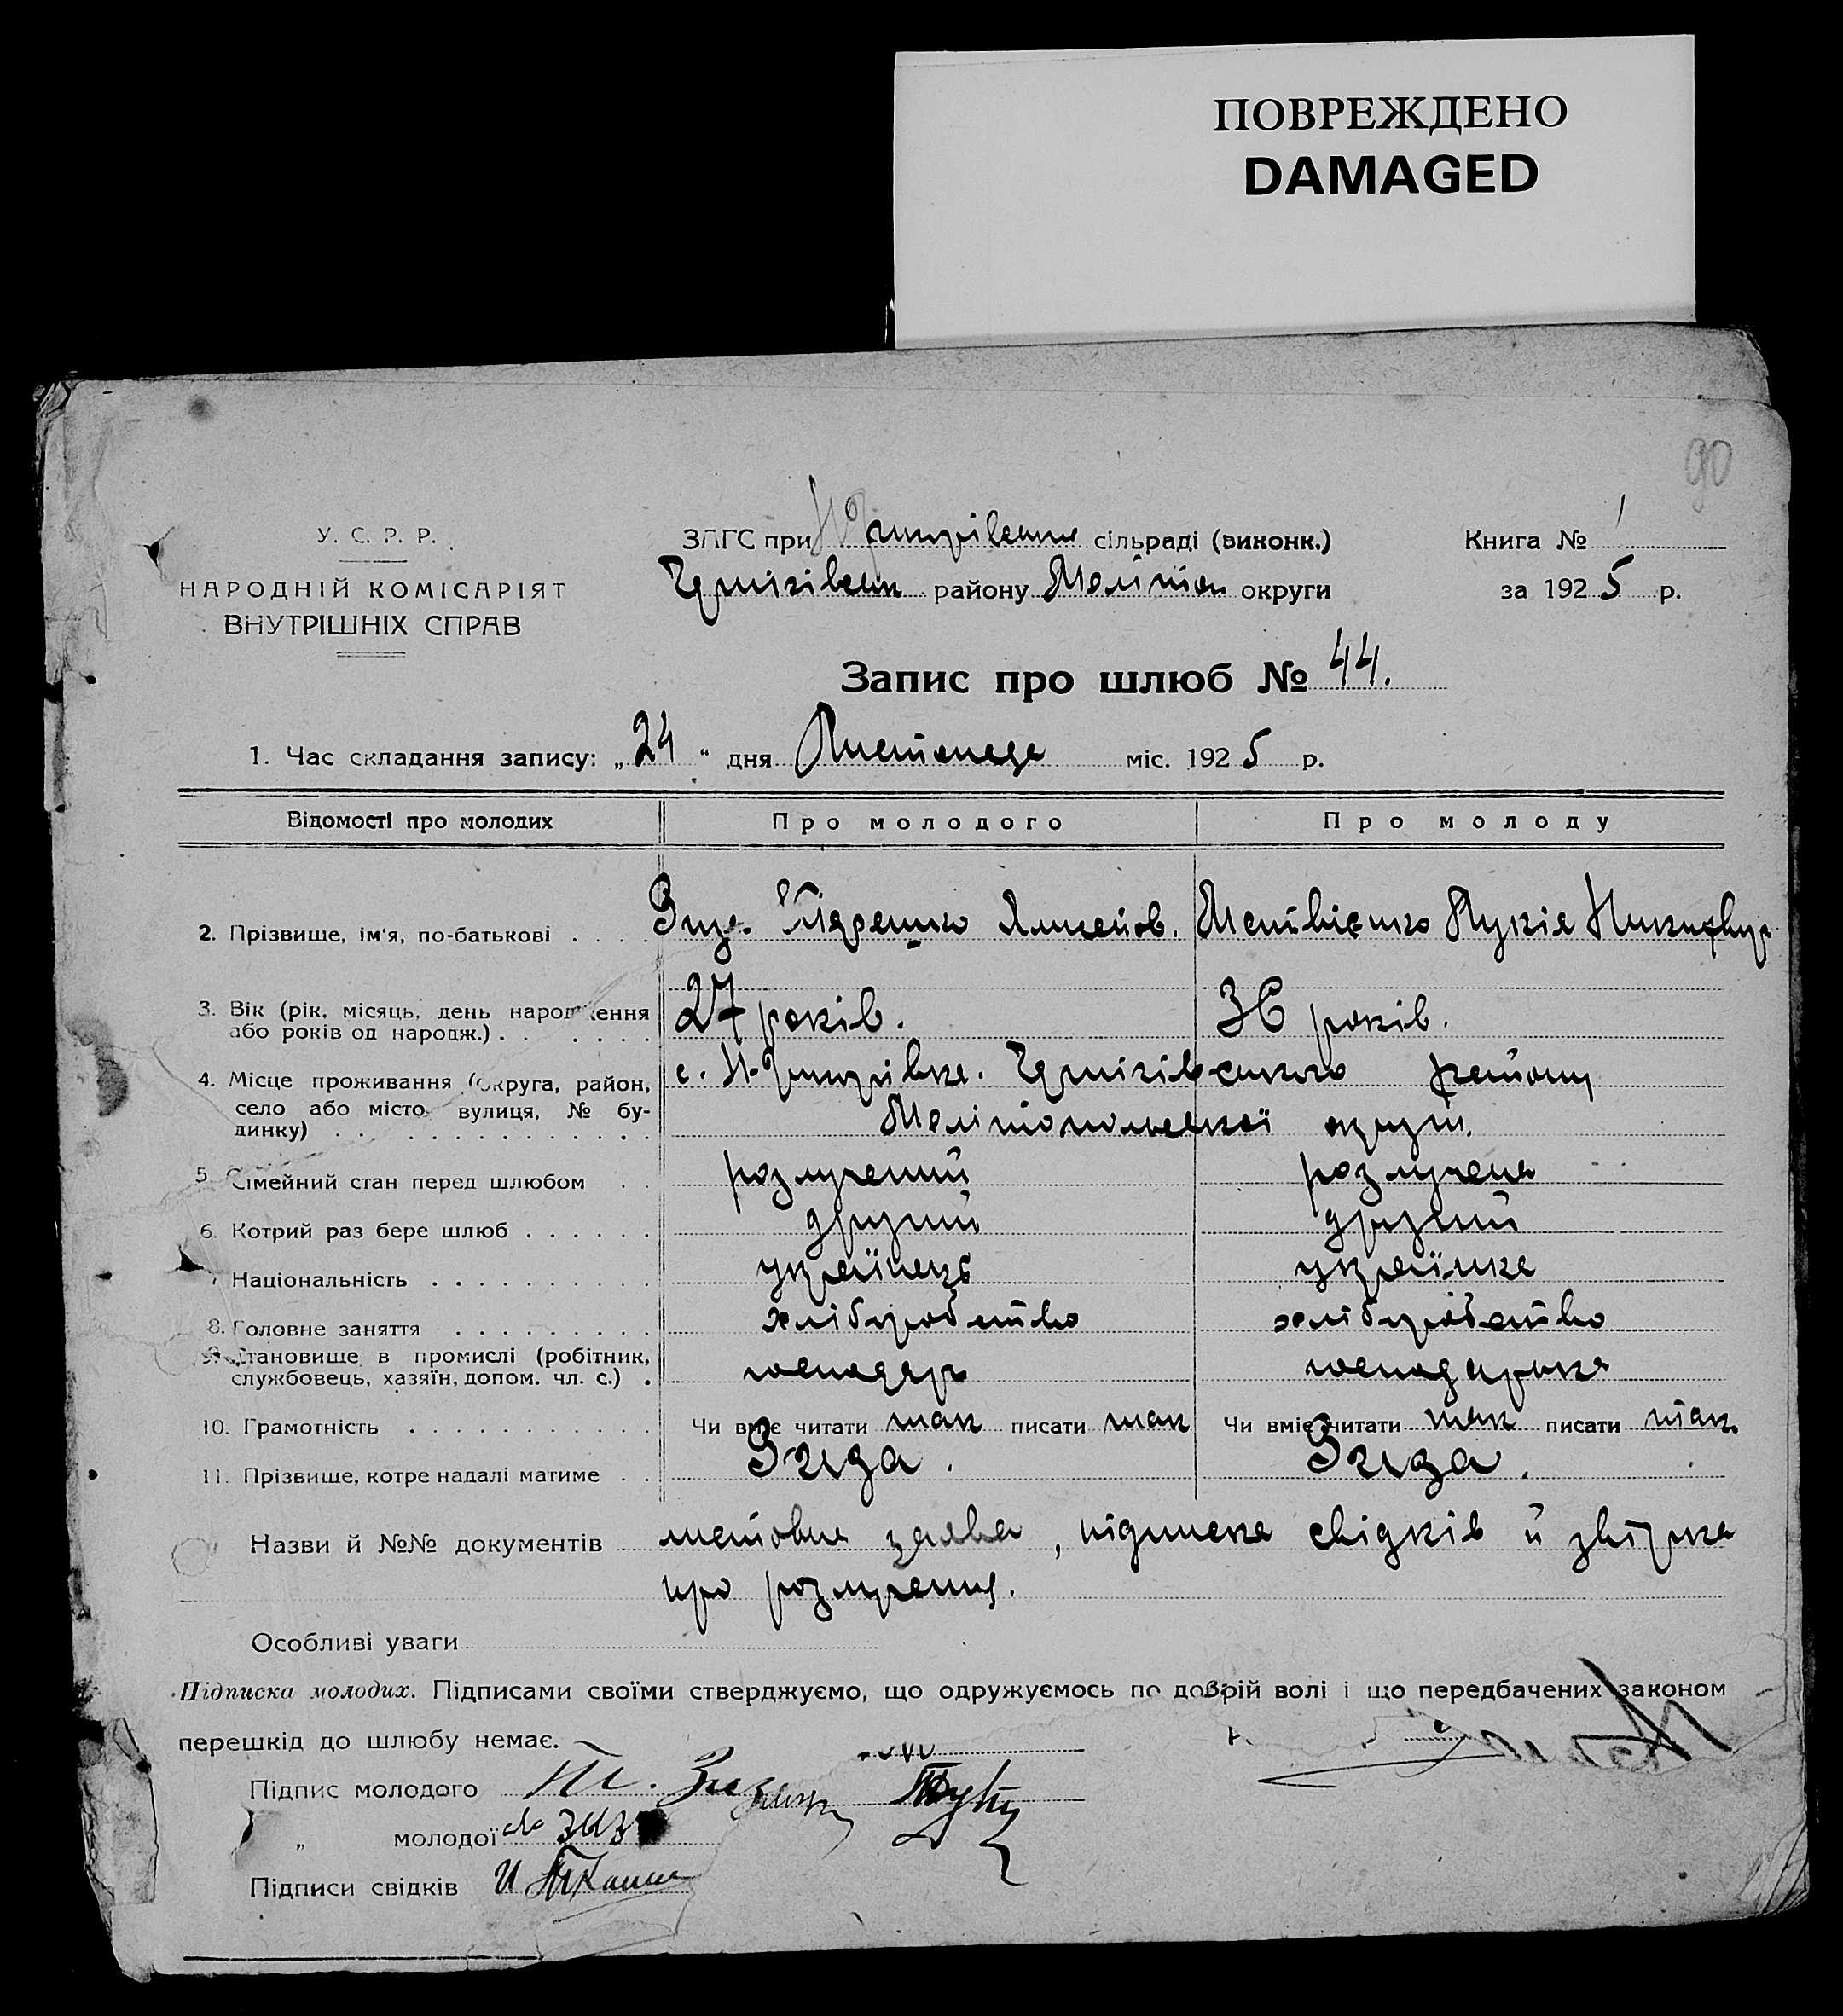 ПОВРЕЖДЕНО
DAMAGED
90
У. С. Р. Р.
НАРОДНІЙ КОМІСАРІЯТ
ВНУТРІШНІХ СПРАВ
ЗАГС при сільраді (виконк.)
Чернігівськ району Меліттоп округи
Книга № 1
за 1925 р.
Запис про шлюб № 44.
1. Час складання запису: „24“ дня Листопада міс. 1925 р.
Відомості про молодих Про молодого Про молоду
2. Прізвище, ім'я, по-батькові . . . . Матвієнко Лукія
3. Вік (рік, місяць, день народження
або років од народж.) . . . . . . 27 років. 36 років.
4. Місце проживання (округа, район, Чернігівського району
село або місто, вулиця, № бу-
динку) . . . . . . . . . . . . Мелітопольської округи.
5. Сімейний стан перед шлюбом . . розлучений розлучена
6. Котрий раз бере шлюб . . . . . . другий другий
7. Національність . . . . . . . . . українець українка
8. Головне заняття . . . . . . . . . хліборобство хліборобство
9. Становище в промислі (робітник,
службовець, хазяїн, допом. чл. с.) . господар господарька
10. Грамотність . . . . . . . . . . . Чи вміє читати так писати так Чи вміє читати так писати так
11. Прізвище, котре надалі матиме . . Зиза. Зиза.
Назви й №№ документів заява, підписка свідків й
про розлучення.
Особливі уваги
Підписка молодих. Підписами своїми стверджуємо, що одружуємось по добрій волі і що передбачених законом
перешкід до шлюбу немає.
Підпис молодого
„ молодої
Підписи свідків